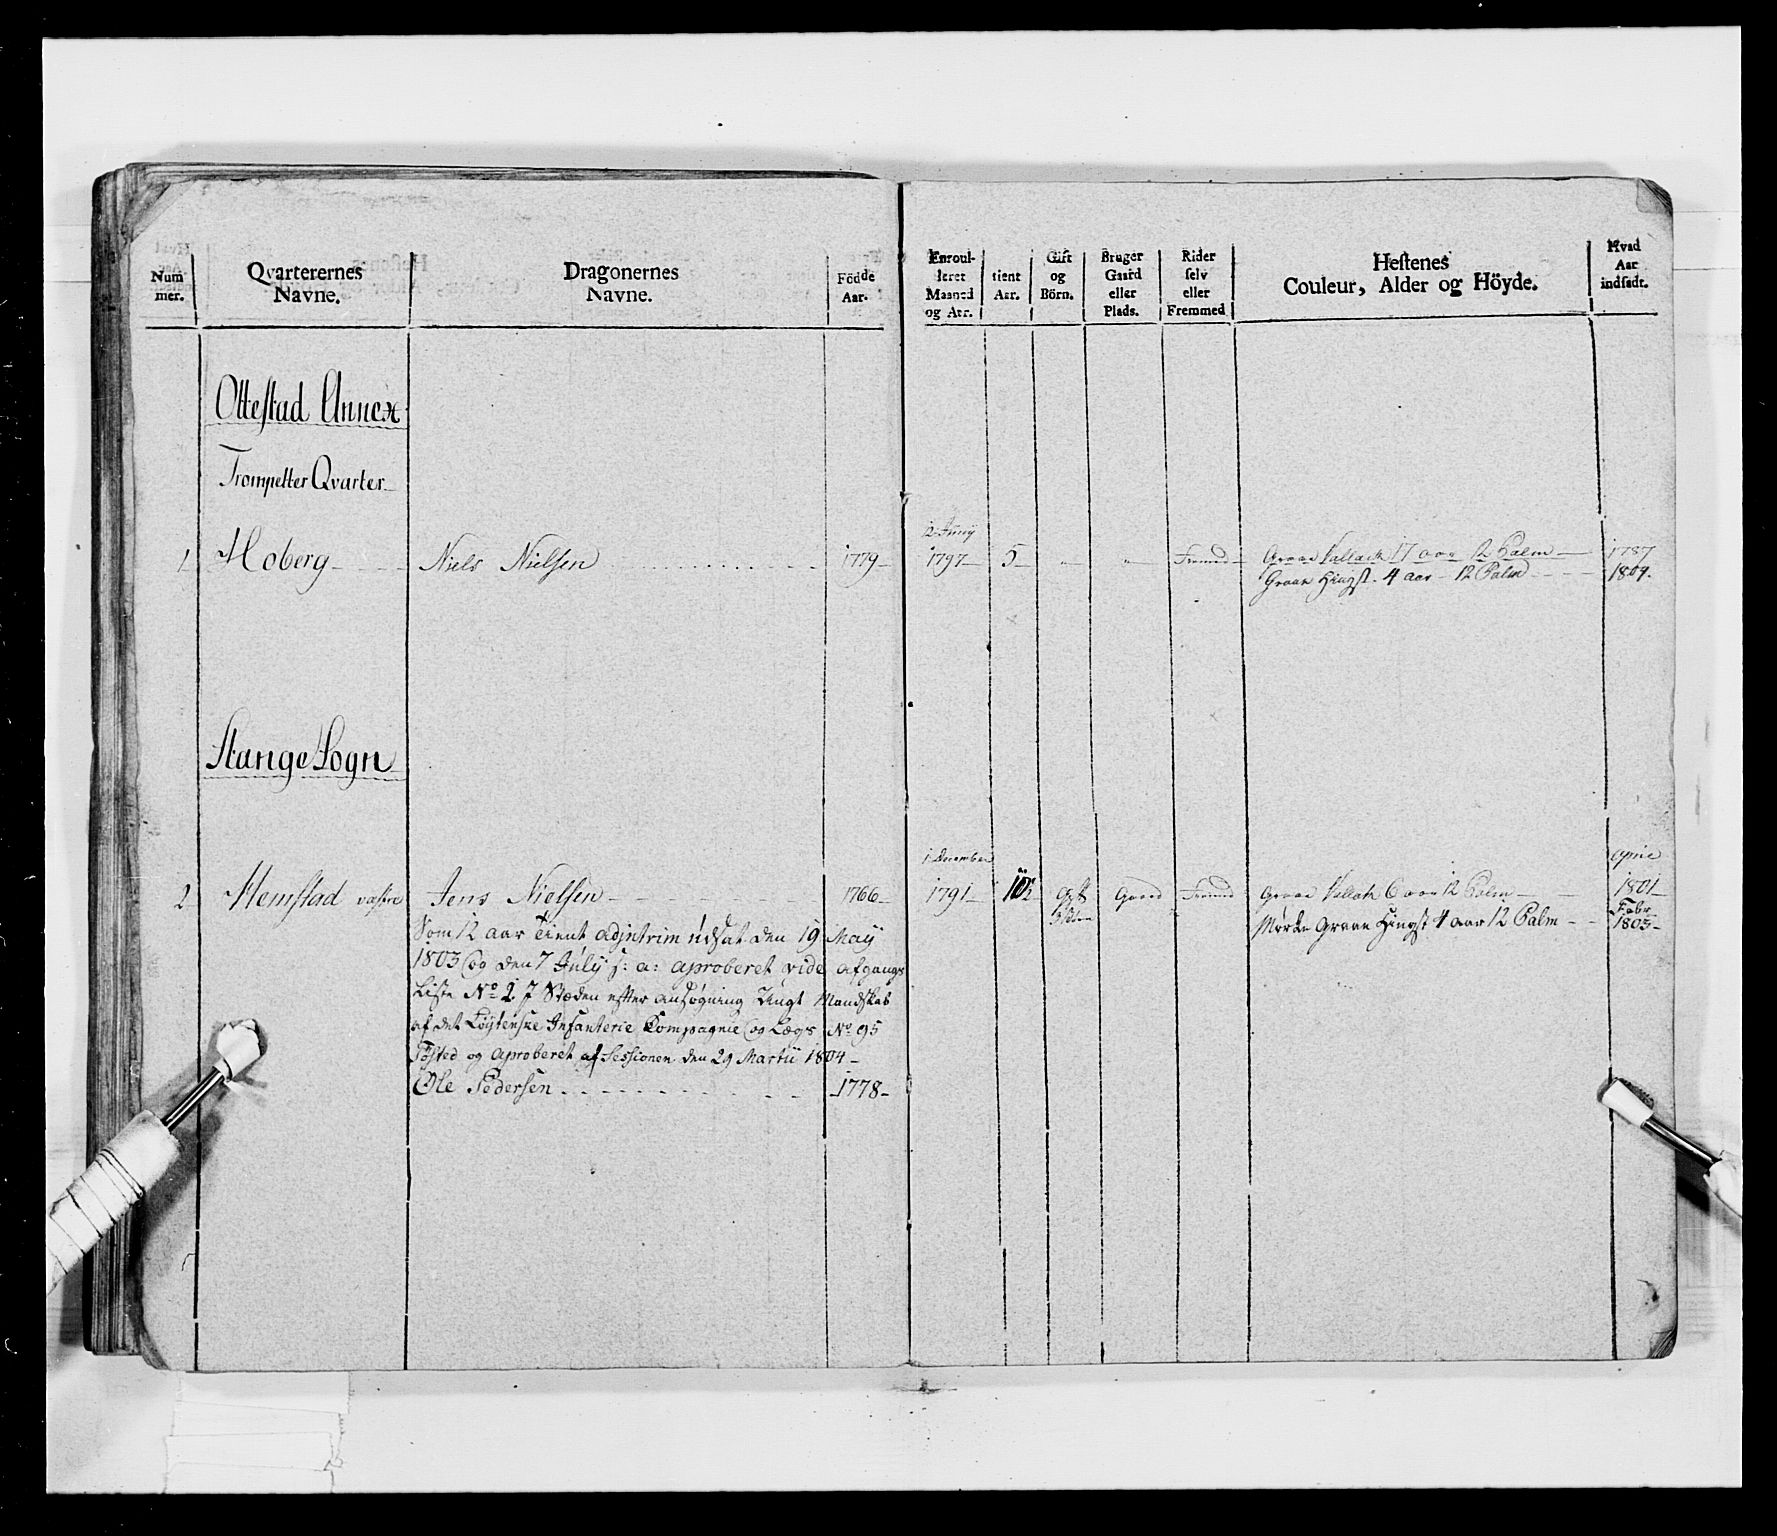 Num
mer.
Qvarterernes
Navne.
Dragonernes
Navne.
Födde
Aar.
Enroul-
leret
Maaned
og Aar.
tient
Aar.
Gift
og
Börn.
Bruger
Gaard
eller
Plads.
Rider
selv
eller
Fremmed
Hestenes
Couleur, Alder og Höyde.
Hvad
Aar
indsadt.
Ottestad Annex
Trompetter Qvarter
12 Junij
1 Hoberg Niels Nielsen 1779 1797 5 " " Fremed Graae Vallack 17 aar 12 Palm 1787
Graae Hingst 4 aar 12 Palm 1804.
Stange Sogn
1 December April
2 Hemstad vestre Jens Nielsen 1766 1791 10½ Gift Gaard Fremed Graae Vallack 6 aar 12 Palm 1801
Febr
Mørke Graae Hingst 4 aar 12 Palm 1803
Som 12 aar Tient adjntrim udsat den 19 May
1803 og den 7 July s: a: aproberet vide afgangs
Liste No 2. J Stæden efter ansøgning Dugt Mandskab
af det Løytenske Infanterie Kompagnie og Lægs No 95
og aproberet af Sessionen den 29 Martii 1804
Ole Pedersen 1778